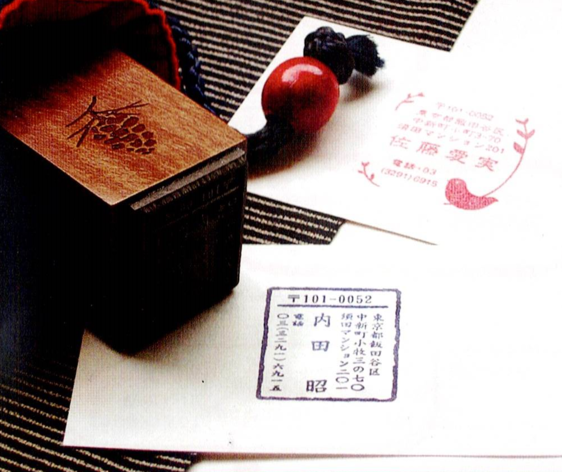 〒101-0052
東京都飯田谷区
中新町小牧3-70
須田マンション201
佐藤愛実
電話・03
(3291)0915
〒101-0052
東京都飯田谷区
中新町小牧三の七〇
須田マンション二〇一
内田 昭
電話
〇三(三二九一)六九一五